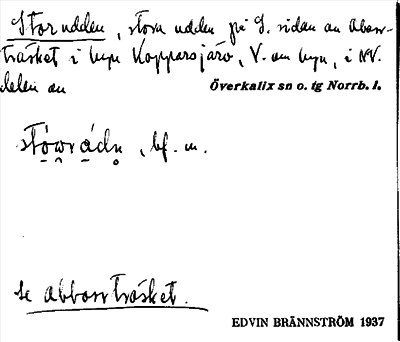 Storudden, stora udden på S. sidan av Abborr-
träsket i byn Kopparsjärv, V. om byn, i NV.
delen av Överkalix sn o. tg Norrb. l.
stówrádn̥, bf. m.
se abborrträsket.
EDVIN BRÄNNSTRÖM 1937